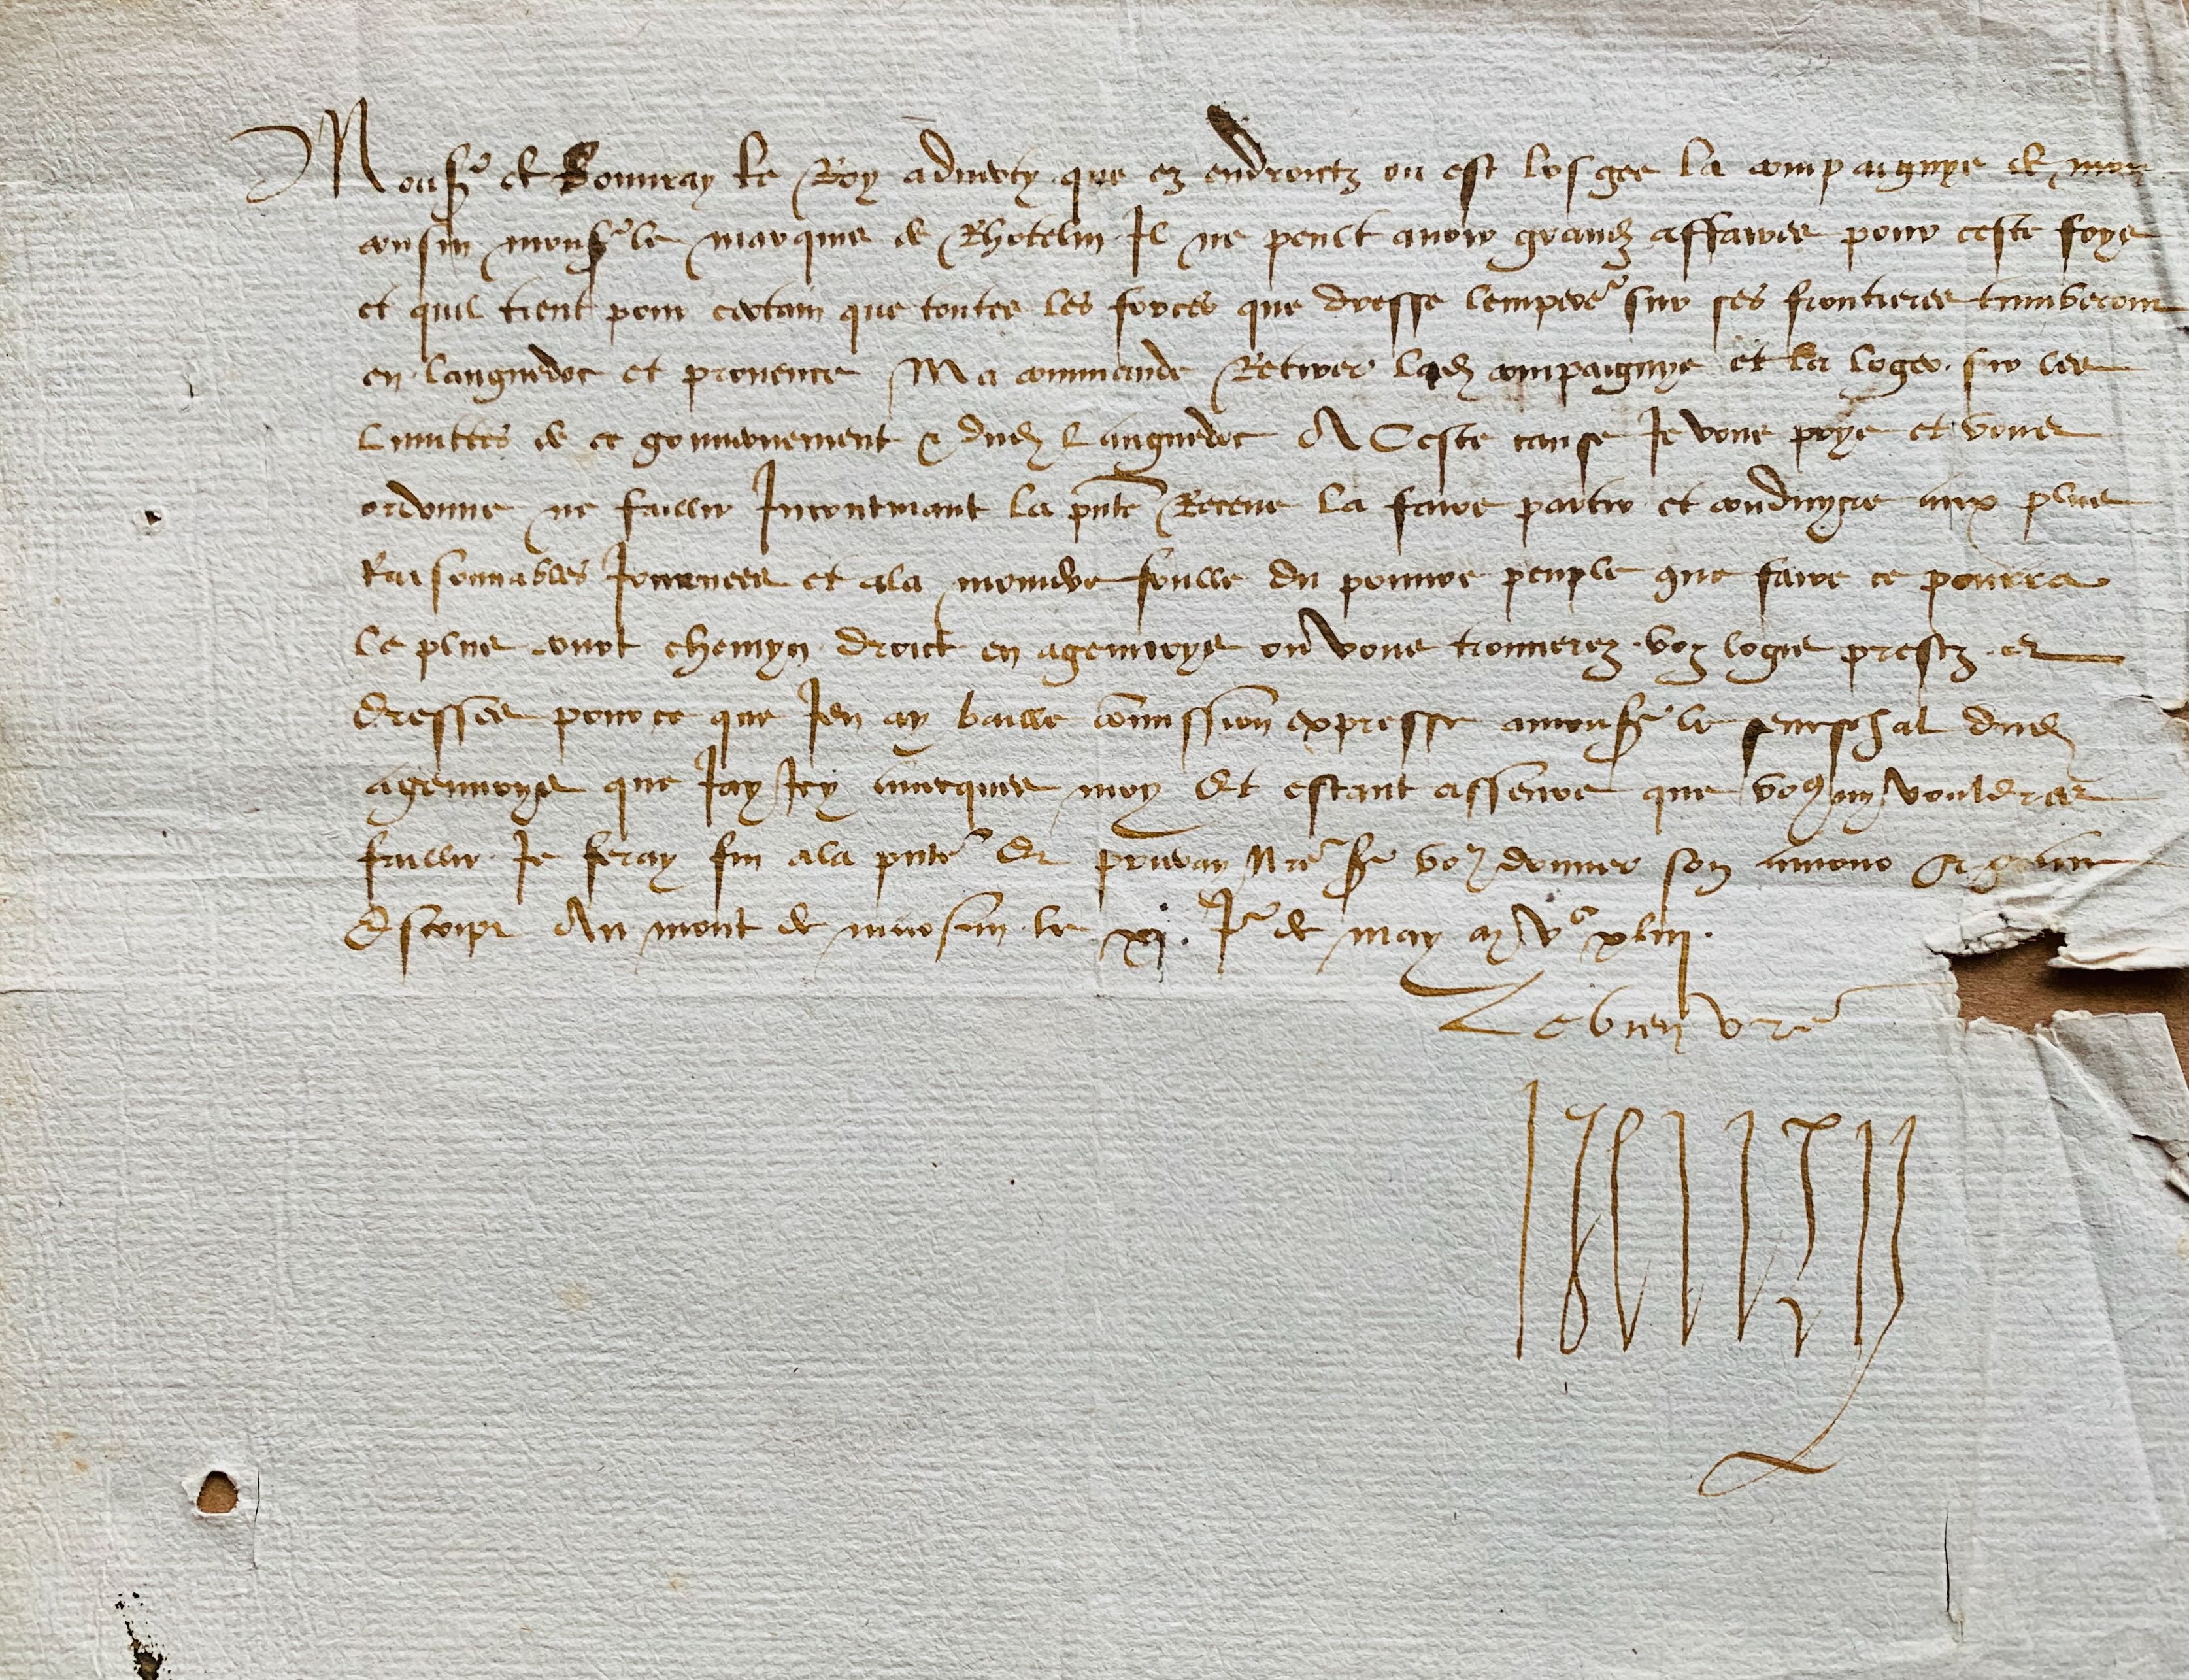 Monsr de Bonnray le Roy adverty que ez endroictz ou est losgee la compaignye de mon
cousin monsr le marquis de Rhotelin Il ne peult avoir grandz affaires pour ceste foys
et quil tient pour certain que toutes les forces que dresse lemperer sur ses frontieres tumberont
en languedoc et provence Ma commande Retirer lad compaignye et la loger sur les
limittes de ce gouvernement & dud Languedoc A Ceste cause Je vous prye et vous
ordonne ne faillir Incontinant la pnte Receue la faire partir et conduyre aux plus
Raisonnables Journees et ala moindre foulle du pouvre peuple que faire ce pourra
le plus court chemyn droict en agennoys ou vous trouverez voz logis prestz et
dressés pource que Jen ay baillé comission expresse a monsr le seneschal dud
agennoys que Jay Icy avecques moy Et estant asseuré que vous ny vouldrés
faillir Je feray fin ala pnte Et priray Nre sr vous donner son amour et grace
Escript Au mont de marsan le xj Jr de may
Le bien vre
HENRY